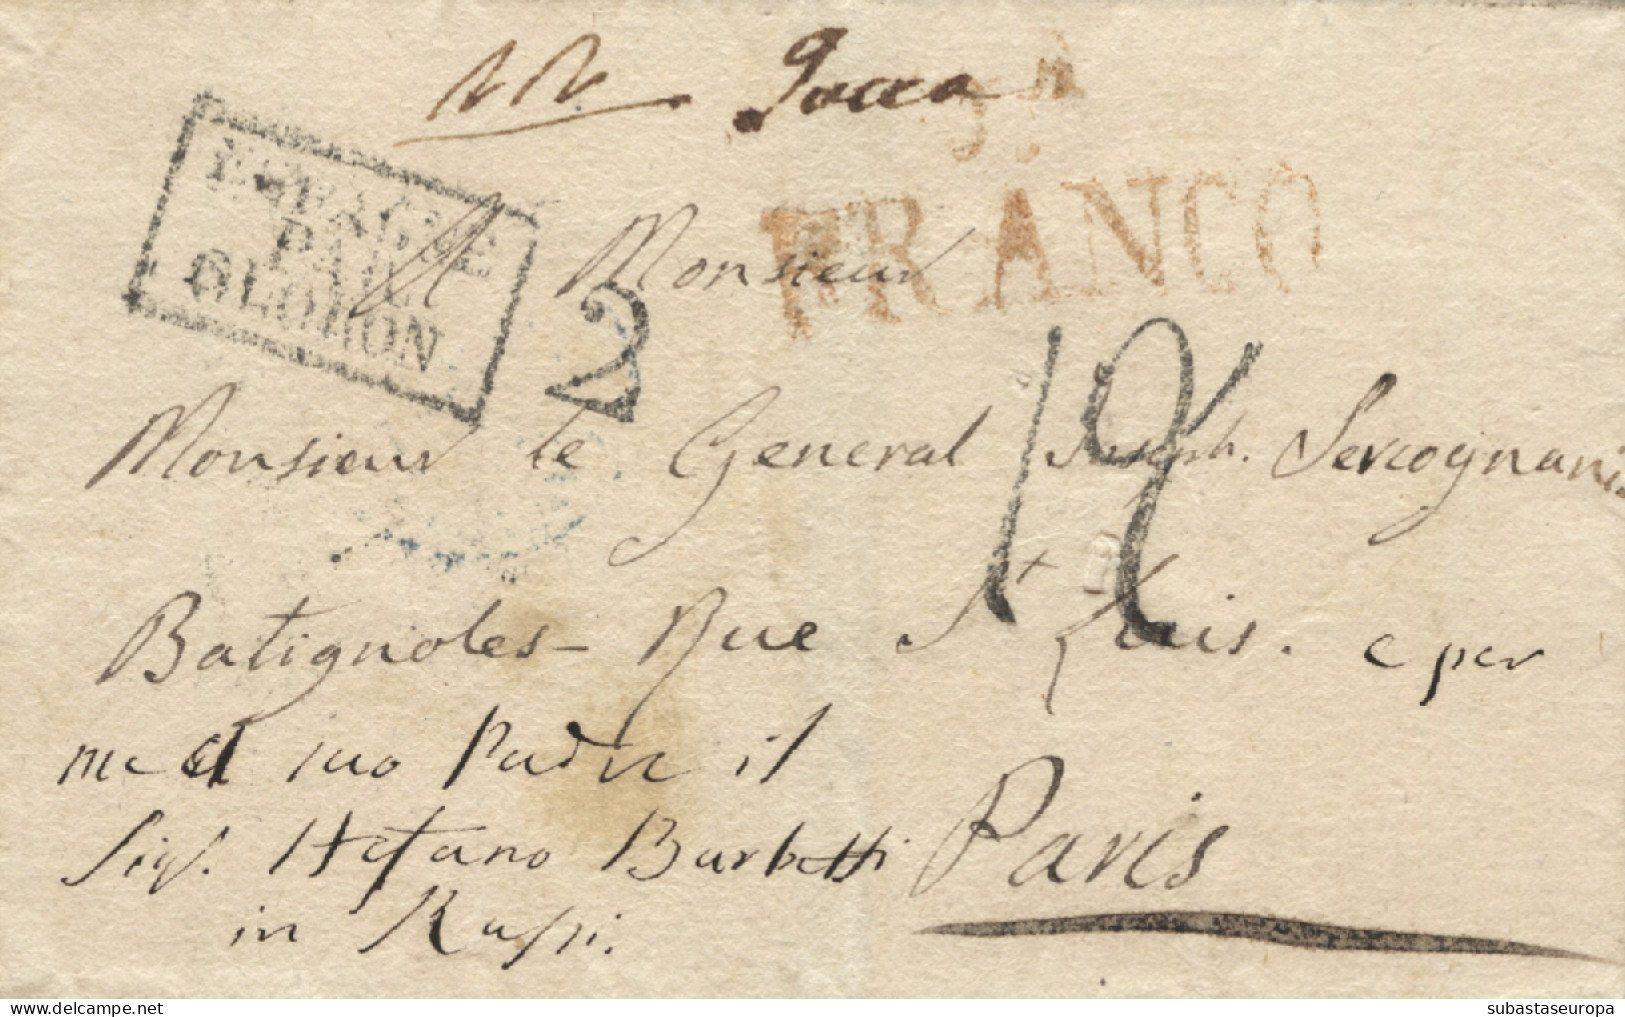 Jacca
FRANCO
ESPAGNE
PAR
OLORON
A Monsieur
2
12
Monsieur le General Joseph. Sercognani
Batignoles - Rue St Luis. e per
me al suo Padre il
Sigr. Stefano Barbetti
in Russi.
Paris
delcampe.net
subastaseuropa